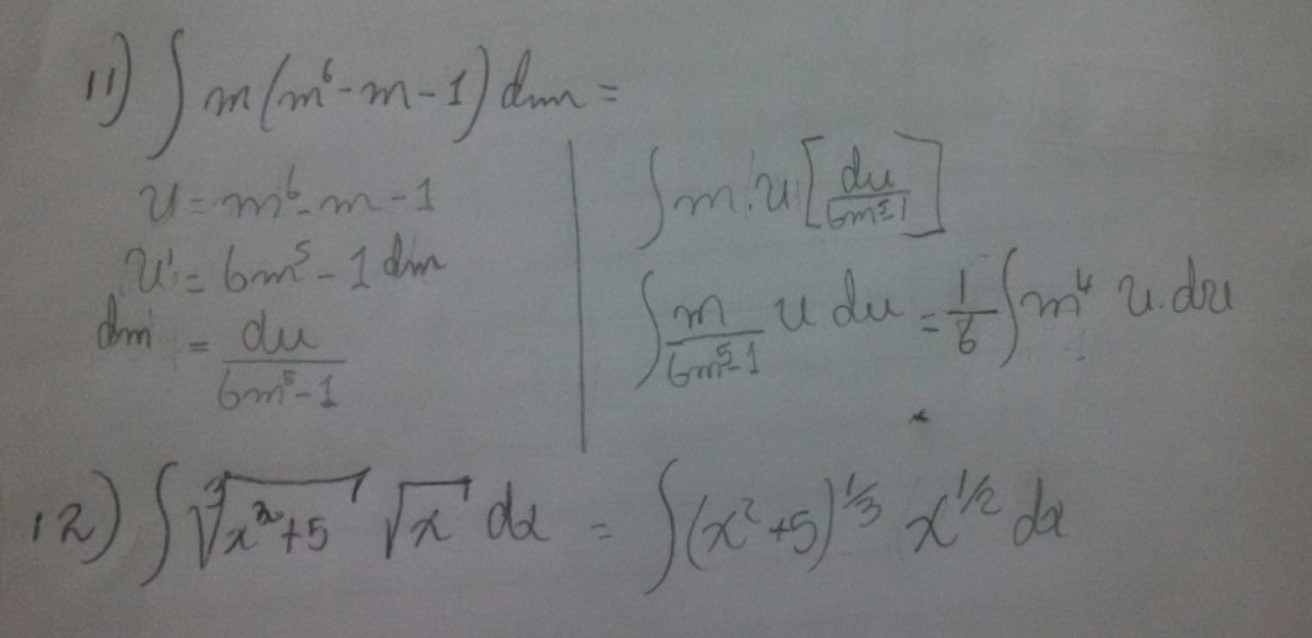 11) ∫ m(m⁶ - m - 1) dm =
u = m⁶ - m - 1
u' = 6m⁵ - 1 dm
dm = du / (6m⁵ - 1)
∫ m . u [du / (6m⁵ - 1)]
∫ m / (6m⁵ - 1) u du = 1/6 ∫ m⁴ u . du
12) ∫ ∛(x² + 5) √x dx = ∫ (x² + 5)^(1/3) x^(1/2) dx